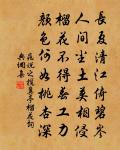 長友清江倚碧岑
人間塵土莫相侵
榴花不得春工力
顏色何如桃杏深